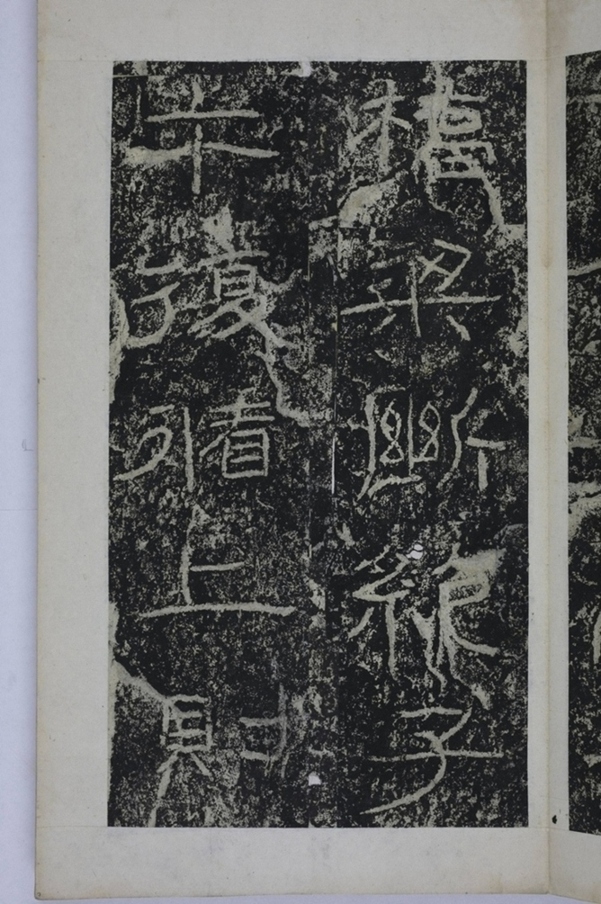 橋梁斷絶子
午復循上則